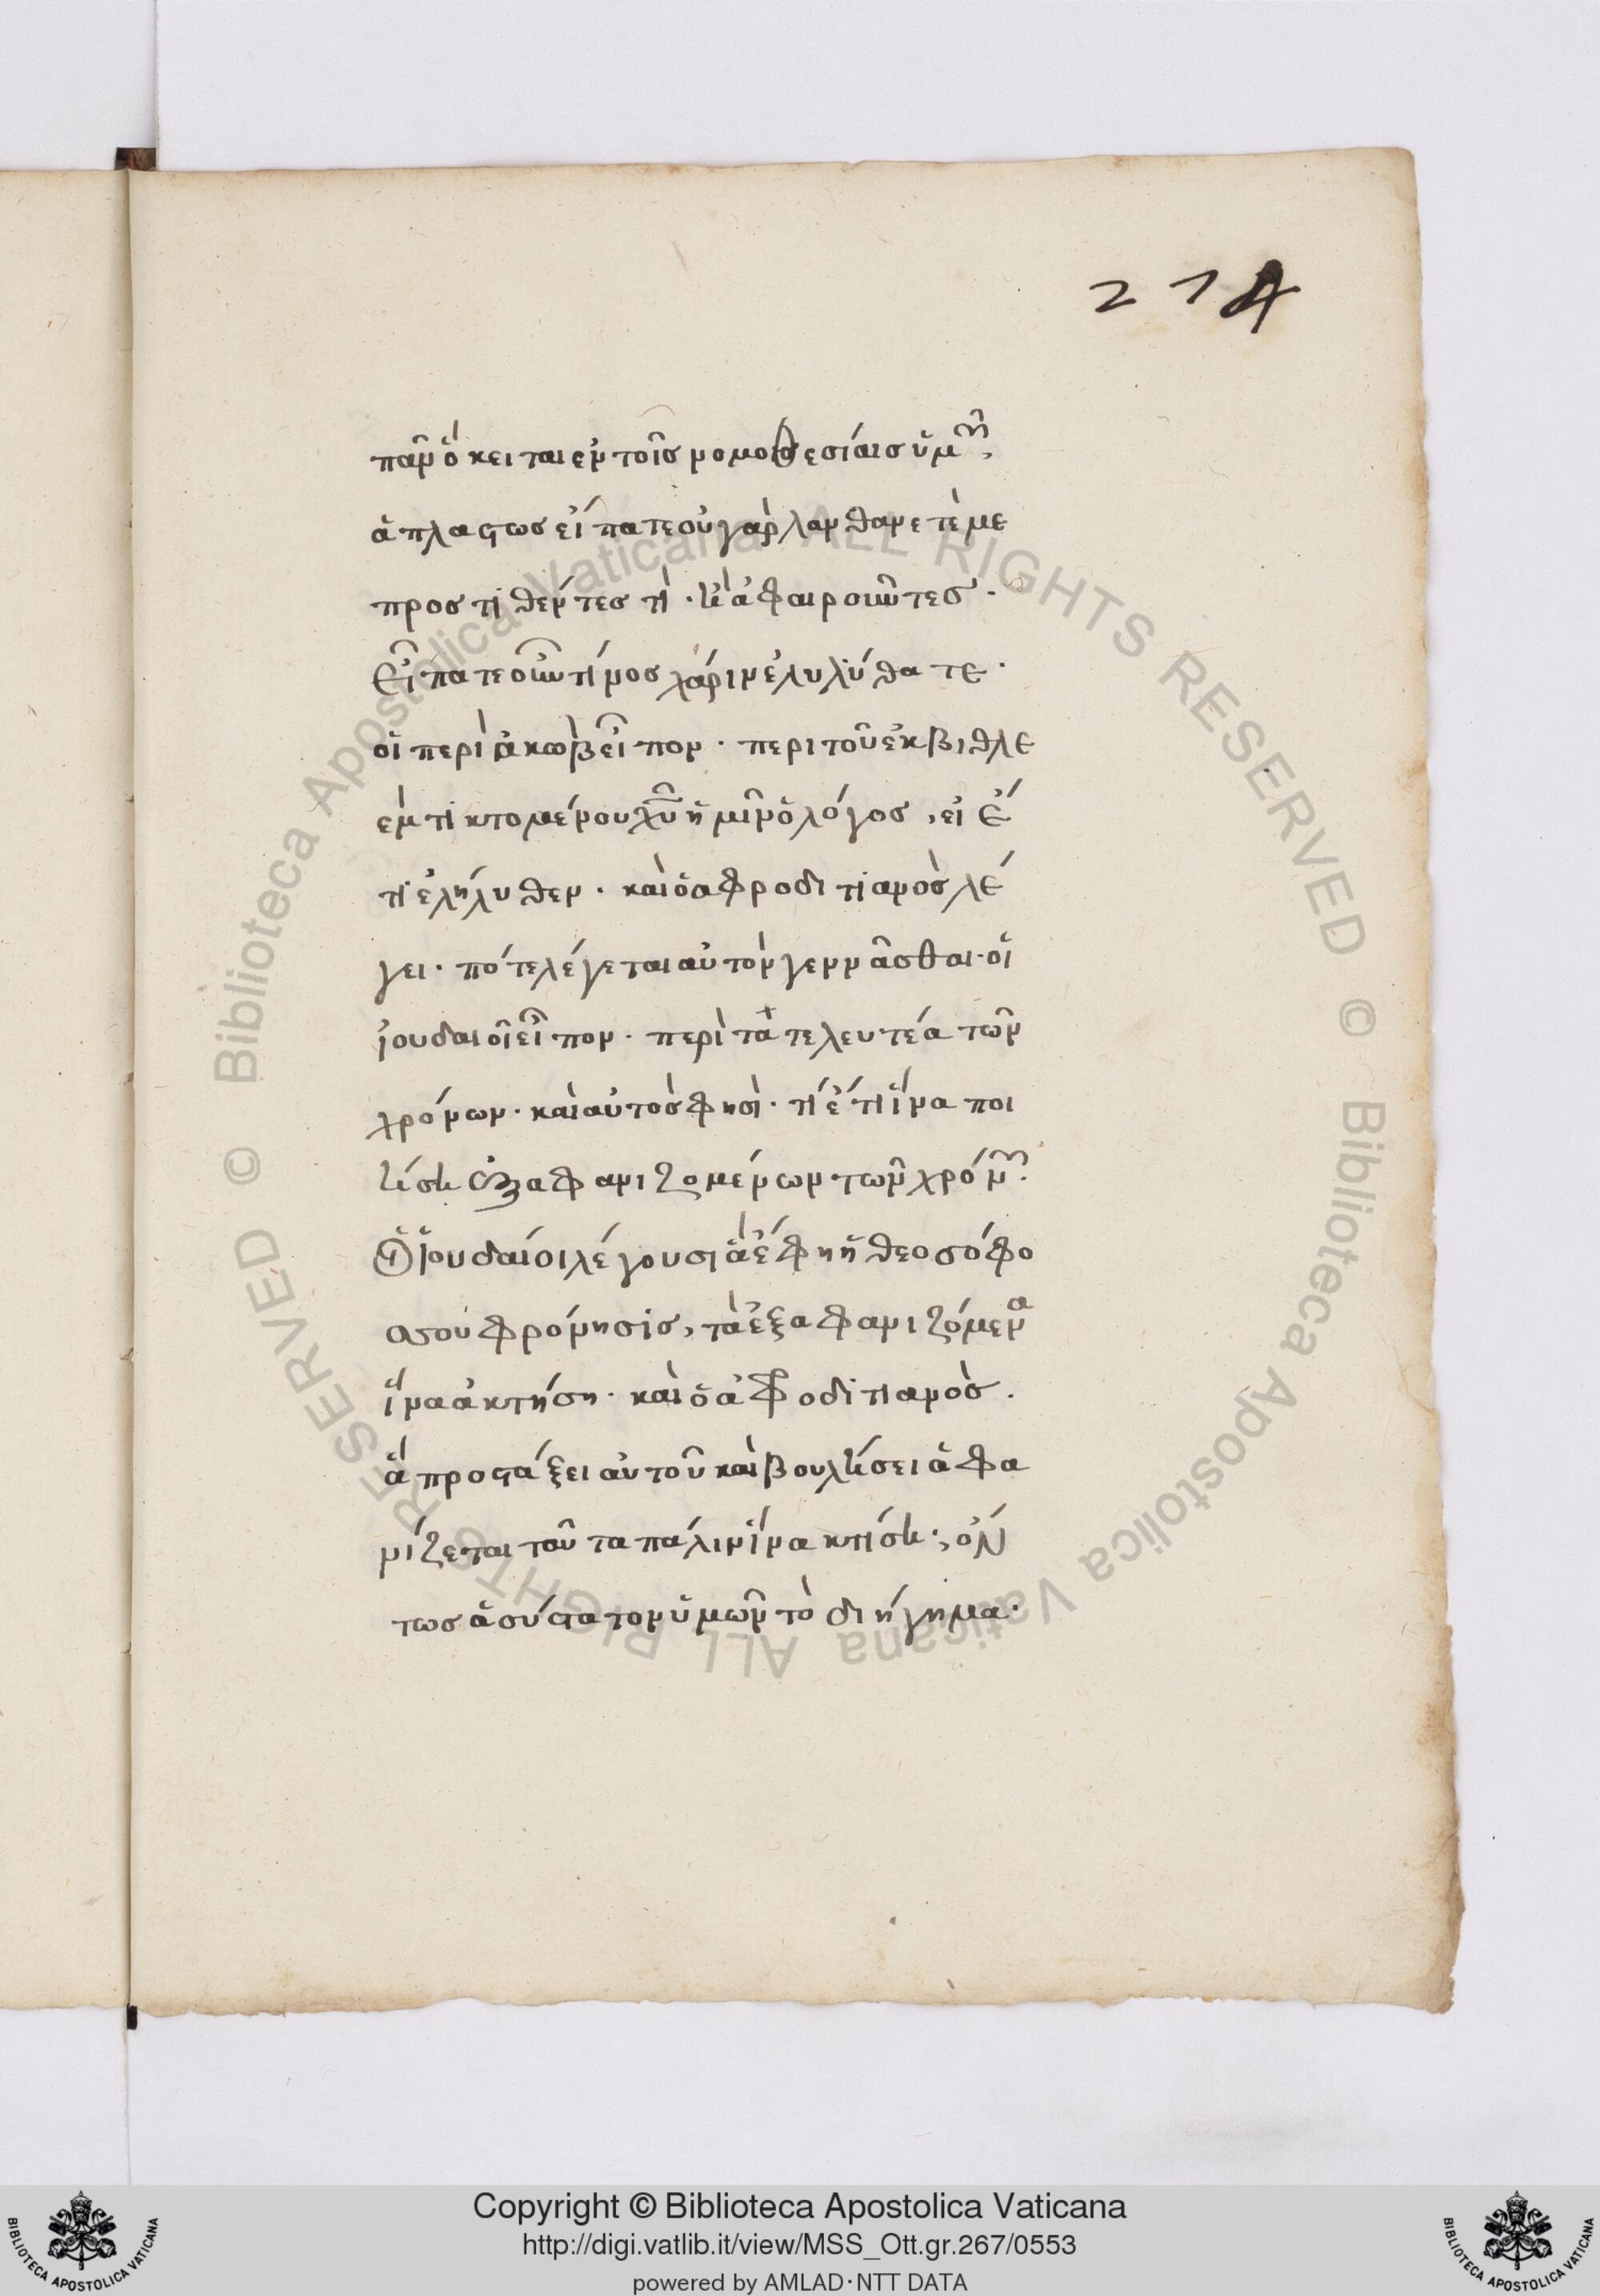 274
πᾶν ὃ κειται εν τοῖσ νομοθεσίαισ ὑμῶν,
ἀπλαστωσ εἴπατε οὐ γαρ λανθανετέ με
προστιθέντεσ τι · ἢ ἀφαιροῦντεσ ·
Εἴπατε οὖν τίνοσ χάριν ἐλυλύθατε ·
οἱ περὶ ἰακωβ εἶπον · περι τοῦ ἐκ βιθλε
εμ τικτομένου χῦ ἡμῖν ὁ λόγοσ, εἰ ἔ
τι ἐλήλυθεν · καὶ ὁ αφροδιτιανὸσ λέ
γει · πότε λέγεται αὐτὸν γεννᾶσθαι · οἱ
ἰουδαιοῖ εἶπον · περὶ τὰ τελευτέα τῶν
χρόνων · καὶ αὐτόσ φησὶ · τί ἔτι ἵνα ποι
ήσῃ ἐξαφανιζομένων τῶν χρόνων ·
Οἱ ἰουδαίοι λέγουσι ἃ ἔφη ἡ θεοσόφο
σ σου φρόνησίσ, τὰ ἐξαφανιζόμενα
ἵνα ἀκτήσῃ · καὶ ὁ ἀφροδιτιανὸσ .
ἃ προστάξει αὐτοῦ καὶ βουλήσει ἀφα
νίζεται τοῦτα πάλιν ἵνα κτίσῃ ·, ὄν
τωσ ἀσύστατον ὑμῶν τὸ διήγημα ·
Copyright © Biblioteca Apostolica Vaticana
http://digi.vatlib.it/view/MSS_Ott.gr.267/0553
powered by AMLAD·NTT DATA
BIBLIOTECA APOSTOLICA VATICANA
BIBLIOTECA APOSTOLICA VATICANA
© Biblioteca Apostolica Vaticana ALL RIGHTS RESERVED © Biblioteca Apostolica Vaticana ALL RIGHTS RESERVED